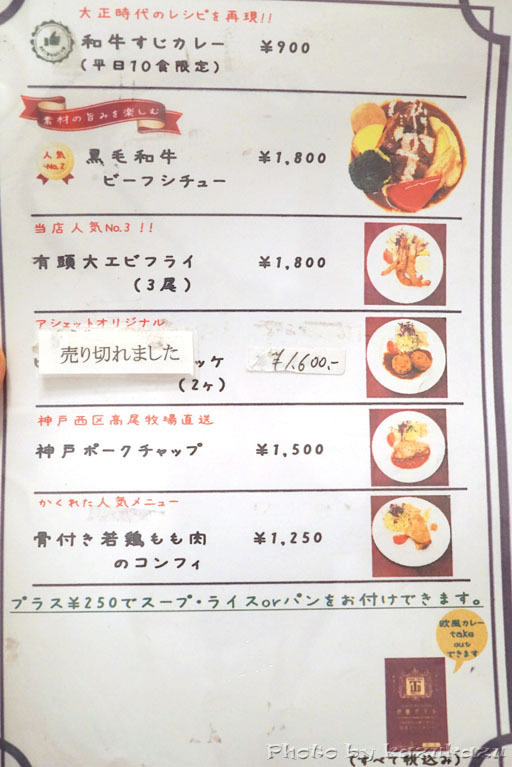 大正時代のレシピを再現!!
和牛すじカレー ¥900
(平日10食限定)
素材の旨みを楽しむ
人気
No.2
黒毛和牛 ¥1,800
ビーフシチュー
当店人気No.3 !!
有頭大エビフライ ¥1,800
(3尾)
アシェットオリジナル
売り切れました ッケ ¥1,600.-
(2ヶ)
神戸西区高尾牧場直送
神戸ポークチャップ ¥1,500
かくれた人気メニュー
骨付き若鶏もも肉 ¥1,250
のコンフィ
プラス¥250でスープ・ライスorパンをお付けできます。
欧風カレー
take
out
できます
(すべて税込み)
Photo by kazukazu